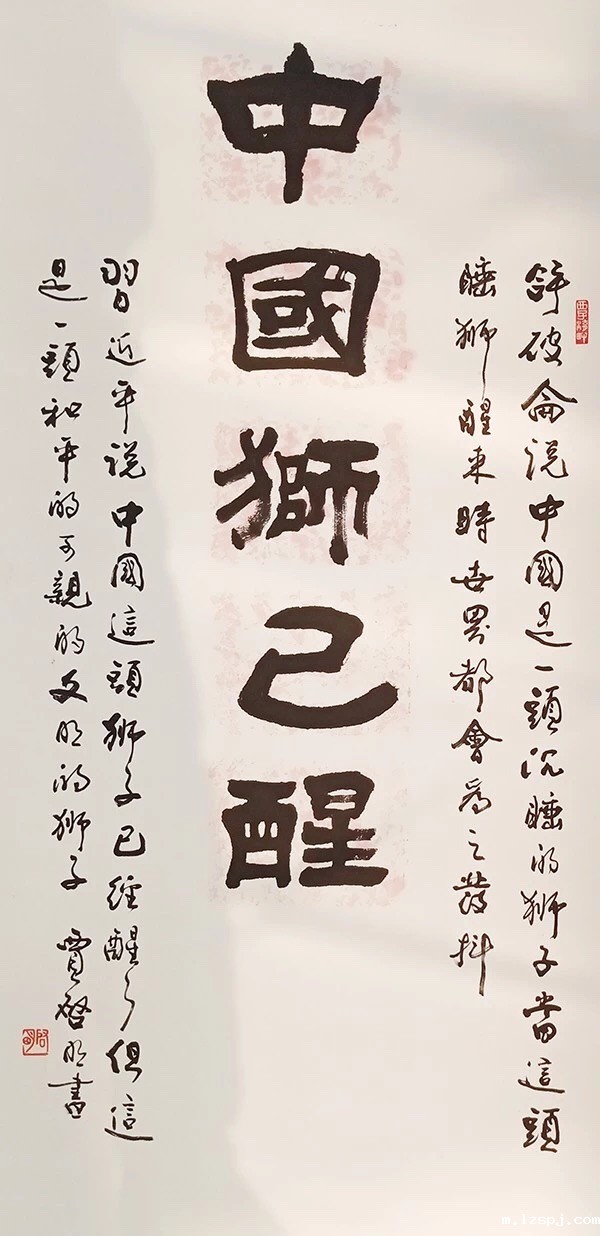 拿破侖说中國是一頭沉睡的狮子當這頭
睡狮醒来時世界都會為之發抖
中國獅已醒
習近平说中國這頭狮子已經醒了但這
是一頭和平的可親的文明的狮子 賈啓明書
m.lzspj.com